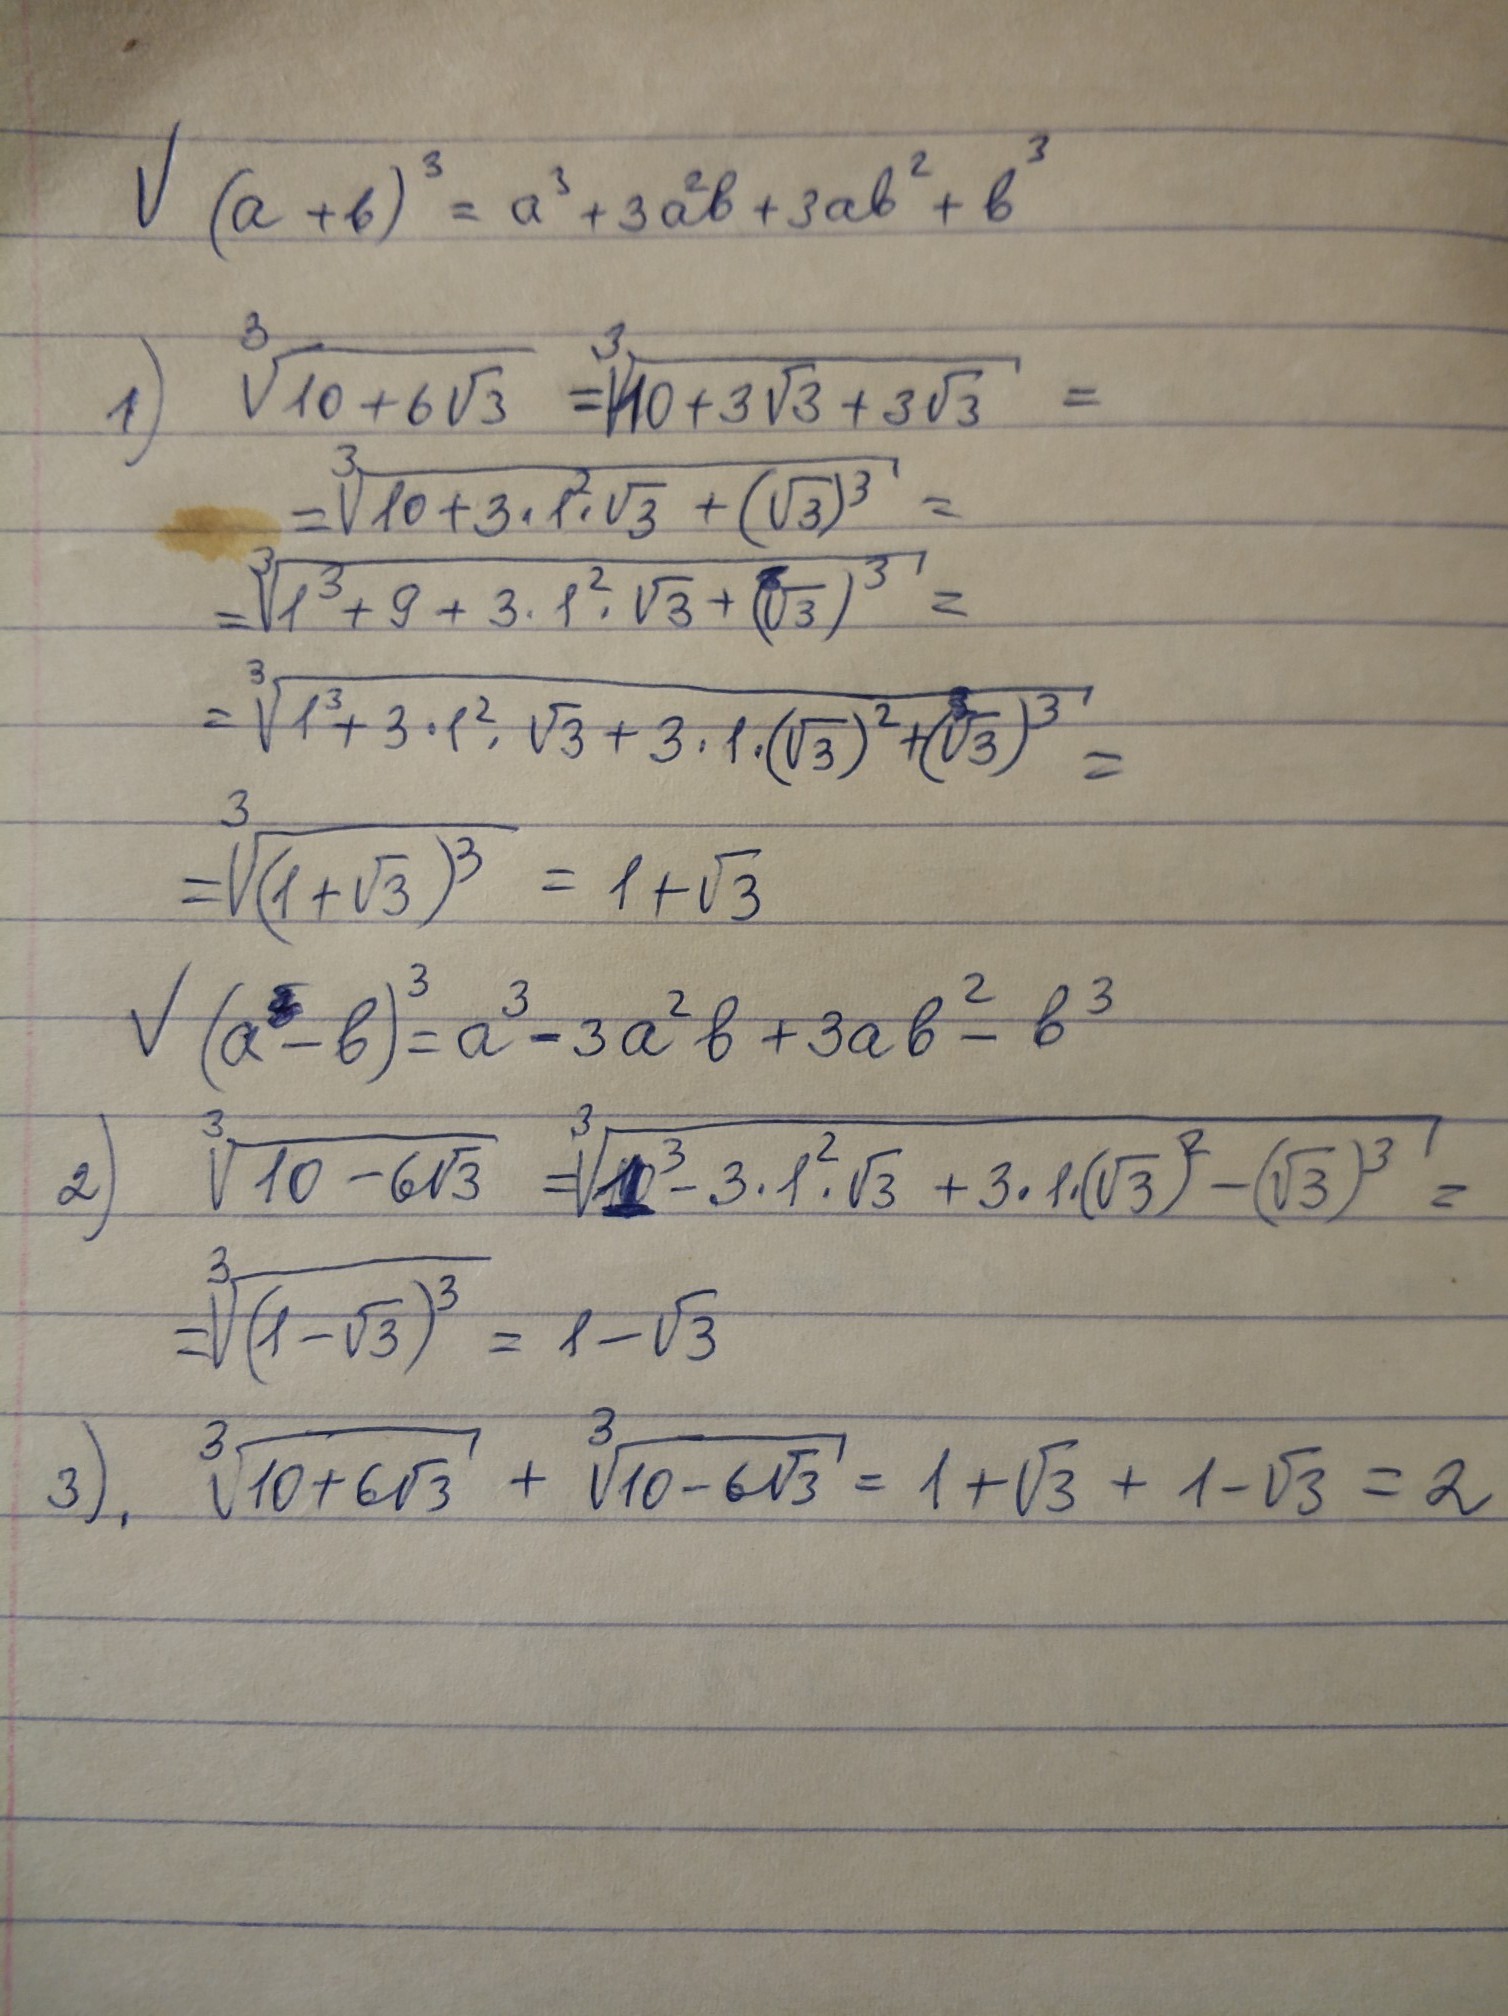 √ (a + b)³ = a³ + 3a²b + 3ab² + b³
1) ∛(10 + 6√3) = ∛(10 + 3√3 + 3√3) =
= ∛(10 + 3·1²·√3 + (√3)³) =
= ∛(1³ + 9 + 3·1²·√3 + (√3)³) =
= ∛(1³ + 3·1²·√3 + 3·1·(√3)² + (√3)³) =
= ∛((1 + √3)³) = 1 + √3
√ (a - b)³ = a³ - 3a²b + 3ab² - b³
2) ∛(10 - 6√3) = ∛(1³ - 3·1²·√3 + 3·1·(√3)² - (√3)³) =
= ∛((1 - √3)³) = 1 - √3
3). ∛(10 + 6√3) + ∛(10 - 6√3) = 1 + √3 + 1 - √3 = 2